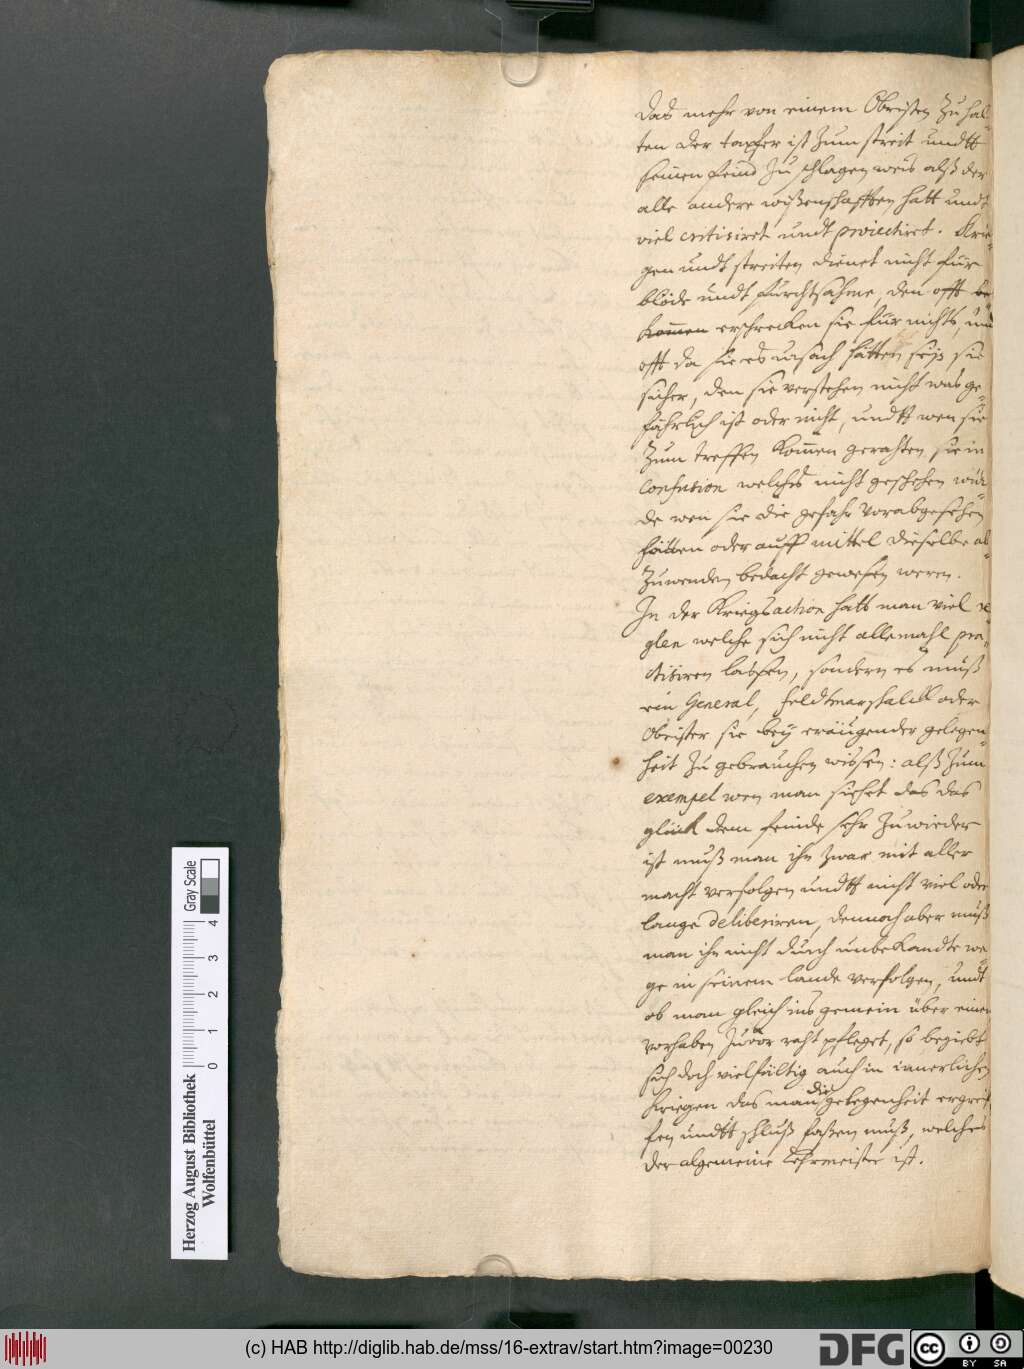 das mehr von einem Obristen zu hal-
ten der tapfer ist zum streit undt
seinen feind zu schlagen weis alß der
alle andere wißenschafften hatt undt
viel critisiret undt proiectiret. Krie-
gen undt streiten dienet nicht für
blöde undt furchtsahme, den offt be-
kommen erschrecken sie für nichts, und
offt da sie es ursach hätten seyn sie
sicher, den sie verstehen nicht was ge-
fährlich ist oder nicht, undt wen sie
zum treffen kommen gerahten sie in
confusion welches nicht geschehen wür-
de wen sie die gefahr vorabgesehen
hätten oder auff mittel dieselbe ab-
zuwenden bedacht gewesen weren.
In der Kriegsaction hatt man viel re-
glen welche sich nicht allemahl pra-
ctisiren lassen, sondern es muß
ein General, Feldtmarschalck oder
Obrister sie bey eräugender gelegen-
heit zu gebrauchen wissen: alß zum
exempel wen man siehet das das
glück dem feinde sehr zuwieder
ist muß man ihn zwar mit aller
macht verfolgen undt nicht viel oder
lange deliberiren, dennoch aber muß
man ihn nicht durch unbekandte we-
ge in seinem lande verfolgen, undt
ob man gleich ins gemein über einen
vorhaben zuvor raht pfleget, so begiebt
sich doch vielfältig auch in innerlichen
Kriegen das man die gelegenheit ergreif-
fen undt schluß faßen muß, welches
der algemeine Lehrmeister ist.
Herzog August Bibliothek
Wolfenbüttel
0 1 2 3 4
Gray Scale
(c) HAB http://diglib.hab.de/mss/16-extrav/start.htm?image=00230
DFG
cc BY SA